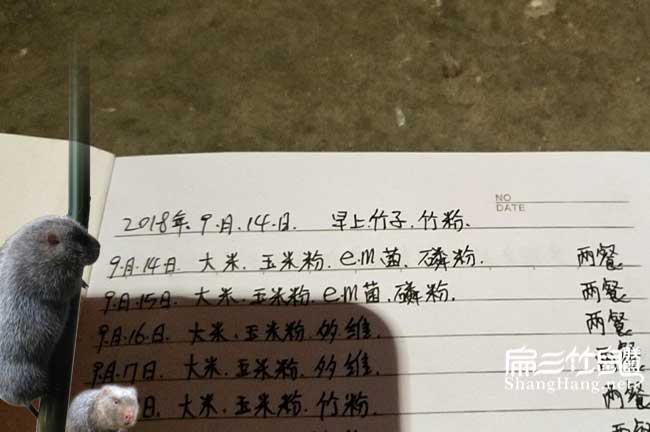 NO
DATE
2018年.9.月.14.日. 早上.竹子.竹粉.
9.月.14日. 大米.玉米粉.em菌.磷粉. 两餐
9.月.15日. 大米.玉米粉.em菌.磷粉. 两餐
9.月.16日. 大米.玉米粉.多维. 两餐
9.月.7日. 大米.玉米粉.多维.
日. 大米.玉米粉.竹粉. 两餐
扁三竹
ShangHang.net